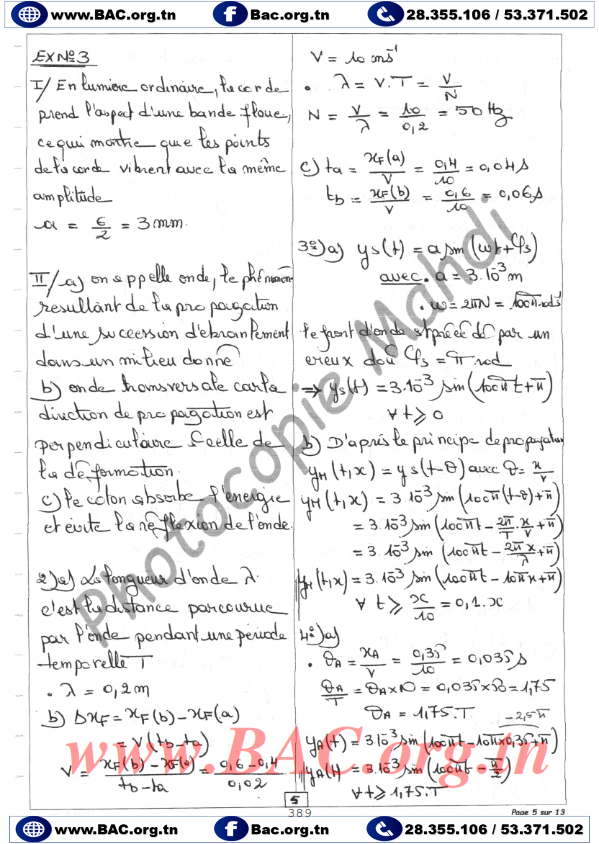 www.BAC.org.tn Bac.org.tn 28.355.106 / 53.371.502
EX N°3
I/ En lumière ordinaire, la corde
prend l'aspect d'une bande floue,
ce qui montre que les points
de la corde vibrent avec la même
amplitude
a = e/2 = 3 mm.
II/ 1-a) on appelle onde, le phénomène
resultant de la propagation
d'une succession d'ébranlement
dans un milieu donné
b) onde transversale car la
direction de propagation est
perpendiculaire à celle de
la déformation.
c) le coton absorbe l'énergie
et évite la réflexion de l'onde.
2) a) La longueur d'onde λ.
c'est la distance parcourue
par l'onde pendant une période
temporelle T
• λ = 0,2 m
b) Δx_F = x_F(b) - x_F(a)
= V(t_b - t_a)
V = (x_F(b) - x_F(a))/(t_b - t_a) = (0,6 - 0,4)/0,02
V = 10 ms⁻¹
• λ = V.T = V/N
N = V/λ = 10/0,2 = 50 Hz
c) t_a = x_F(a)/V = 0,4/10 = 0,04 s
t_b = x_F(b)/V = 0,6/10 = 0,06 s
3°) a) y_s(t) = a sin(ωt + φ_s)
avec • a = 3.10⁻³ m
• ω = 2πN = 100π rads⁻¹
le front d'onde est par un
creux d'où φ_s = π rad
⇒ y_s(t) = 3.10⁻³ sin(100πt + π)
∀ t ⩾ 0
b) D'après le principe de propagation
y_M(t,x) = y_s(t-θ) avec θ = x/V
y_M(t,x) = 3.10⁻³ sin(100π(t-θ) + π)
= 3.10⁻³ sin(100πt - 2π/T . x/V + π)
= 3.10⁻³ sin(100πt - 2πx/λ + π)
y_M(t,x) = 3.10⁻³ sin(100πt - 10πx + π)
∀ t ⩾ x/10 = 0,1.x
4°) a)
• θ_A = x_A/V = 0,35/10 = 0,035 s
θ_A/T = θ_A × N = 0,035 × 50 = 1,75
θ_A = 1,75.T
-2,5π
y_A(t) = 3.10⁻³ sin(100πt - 10π×0,35 + π)
y_A(t) = 3.10⁻³ sin(100πt - π/2)
∀ t ⩾ 1,75.T
Photocopie Mahdi
www.BAC.org.tn
5
389
Page 5 sur 13
www.BAC.org.tn Bac.org.tn 28.355.106 / 53.371.502